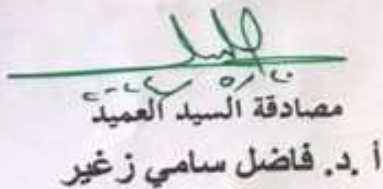 مصادقة السيد العميد
أ.د. فاضل سامي زغير